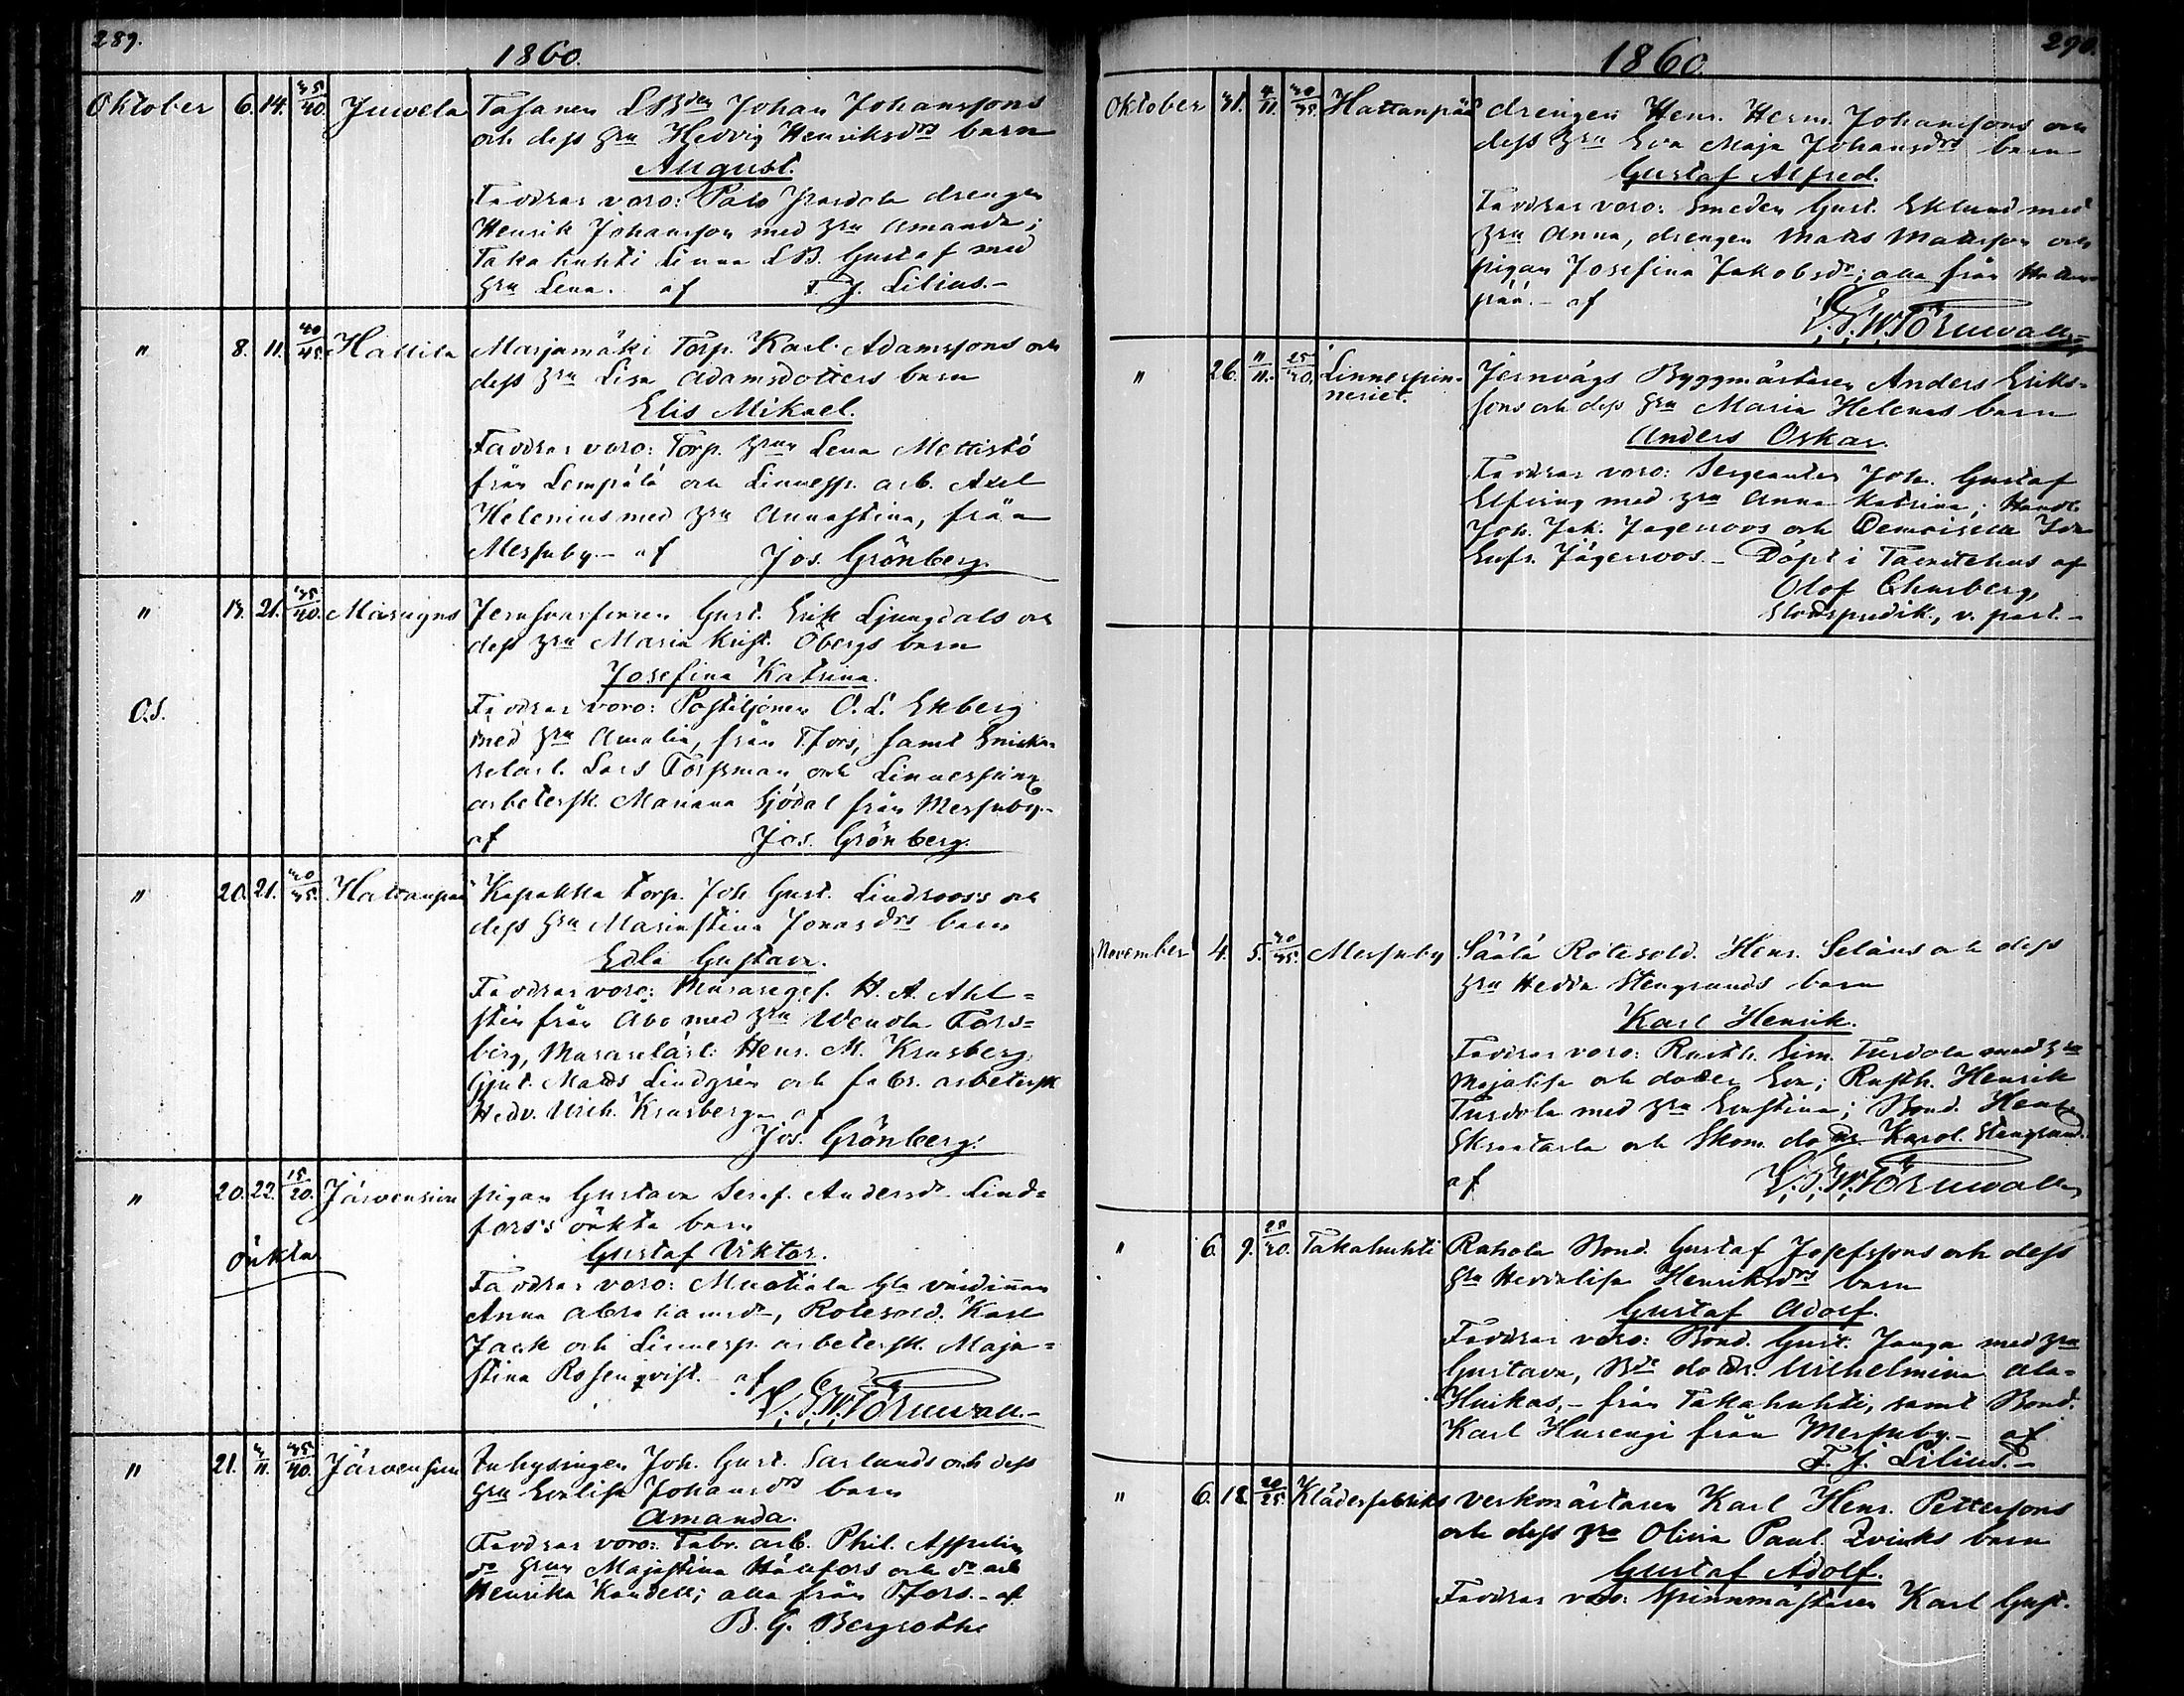 289.
1860.
Oktober 6. 14. 35/40. Juvela Tasanen LBden Johan Johanssons
och dess hru Hedvig Henriksdrs barn
August.
Faddrar voro: Palo drengen
Henrik Johansson med hru Amanda;
Takahuhti Linna LB. Gustaf med
hru Lena. af F. J. Lilius.-
" 8. 11. 40/45. Hallila Marjamäki Torp. Karl Adamssons och
dess hru Lisa Adamsdotters barn
Elis Mikael.
Faddrar voro: Torp. hrun Lena Mettistö
från Lempälä och Linnesp. arb. Axel
Helenius med hru Annastina, från
Messuby.- af Jos. Grönberg.
" 13. 21. 35/40. Gust. Erik Ljungdals och
dess hru Maria Krist. Öbergs barn
Josefina Katrina.
O.S. Faddrar voro: Postiljonen O. L. Ekberg
med hru Amalia, från T:fors, samt Snicka-
relärl. Lars Forssman och Linnespinn.
arbetersk. Mariana Sjödal från Messuby.-
af Jos. Grönberg.
" 20. 21. 30/35. Hattanpää Kapakka torp. Joh. Gust. Lindroos's och
dess hru Mariastina Jonasdrs barn
Edla Gustava.
Faddrar voro: Muraregs. H. A. Ahl-
sten från Åbo med hru Wendla Fors-
berg, Murarelärl. Henr. M. Krusberg,
Gjut. Matts Lindgrén och fabr. arbetersk
Hedv. Ulrik. Krusberg.- af
Jos. Grönberg.
" 20. 22. 15/20. Järvensivu pigan Gustava Seraf. Andersdr Lind-
fors's oäkta barn
oäkta
Gustaf Viktor.
Faddrar voro: Muotiala Gla värdinnan
Anna Abrahamsdr, Rotesold. Karl
Jack och Linnesp. arbetersk. Maja-
stina Rosenqvist.- af
V. S. W. Törnwall.-
" 21. 3/11. 35/40. Järvensivu Inhysingen Joh. Gust. Sarlunds och dess
hru Evalisa Johansdrs barn
Amanda.
Faddrar voro: Fabr. arb. Phil. Appelin
do hrun Majastina Hällfors och do arb
Henrika Kandell; alla från T:fors.- af
B. G. Bergroth.
290.
1860.
Oktober 31. 4/11. 30/35. Hattanpää drengen Henr. Herm. Johanssons och
dess hru Eva Maja Johansdrs barn
Gustaf Alfred.
Faddrar voro: Smeden Gust. Eklund med
hru Anna, drengen Matts Mattsson och
pigan Josefina Jakobsdr; alla från Hattan-
pää.- af
V. S. W. Törnwall.-
" 26. 11/11. 25/30. Linnespin-
neriet. Jernvägs Byggmästaren Anders Eriks-
sons och dess hru Maria Helenas barn
Anders Oskar.
Faddrar voro: Sergeanten Joh. Gustaf
Elfving med hru Anna Katrina, Handl.
Joh. Jak. Jägerroos och Demoiselle Ida
Eufr. Jägerroos.- Döpt i Tavastehus af
Olof
v. past.-
November 4. 5. 30/35. Messuby Säälä Rotesold. Henr. Seläns och dess
hru Hedda Stengrunds barn
Karl Henrik.
Faddrar voro: Rusth. Sim. Turdola med hru
Majalisa och dotter Eva; Rusth. Henrik
Turdola med hru Evastina; Bond. Henr.
och Skom. dottr Karol. Stengrund.
af V. S. W. Törnwall
" 6. 9. 25/30. Takahuhti Rahola Bond. Gustaf Josefssons och dess
hru Heddalisa Henriksdrs barn
Gustaf Adolf.
Faddrar voro: Bond. Gust. Janga med hru
Gustava, Bde dottr. Wilhelmina Ala-
Huikas,- från Takahuhti, samt Bond.
Karl Hurengi från Messuby.- af
F. J. Lilius.-
" 6. 18. 20/25. Klädesfabriks verkmästaren Karl Henr. Pettersons
och dess hru Olivia Paul. Zvinks barn
Gustaf Adolf.
Faddrar voro: Spinnmästaren Karl Gust.